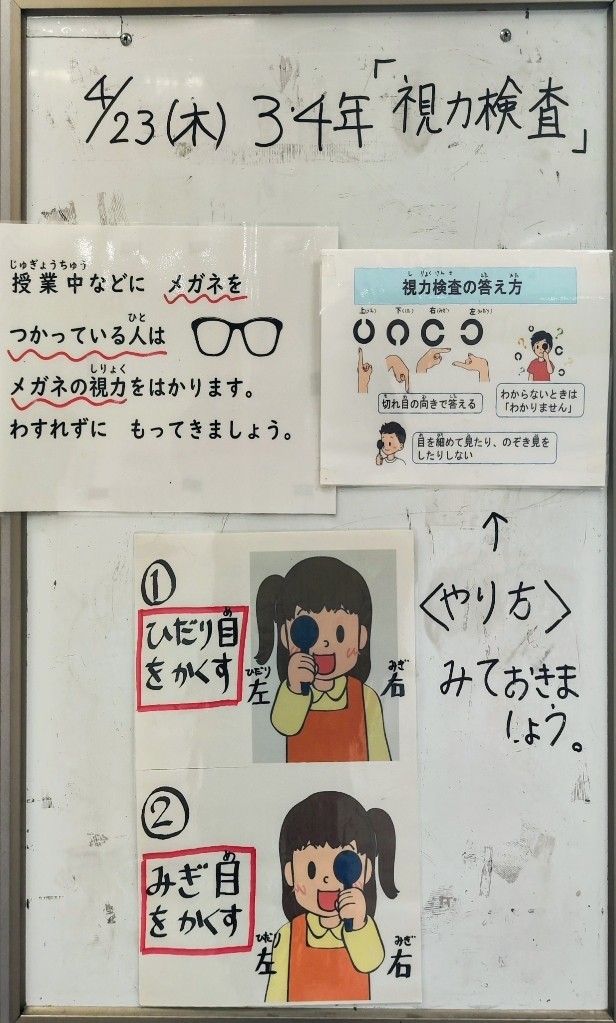 4/23(木) 3・4年「視力検査」
じゅぎょうちゅう
授業中などに メガネを
ひと
つかっている人は
しりょく
メガネの視力をはかります。
わすれずに もってきましょう。
しりょくけんさ こた かた
視力検査の答え方
上(うえ) 下(した) 右(みぎ) 左(ひだり)
切れ目の向きで答える
わからないときは
「わかりません」
目を細めて見たり、のぞき見を
したりしない
↑
〈やり方〉
みておきま
しょう。
①
め
ひだり目
をかくす
ひだり
左
みぎ
右
②
め
みぎ目
をかくす
ひだり
左
みぎ
右